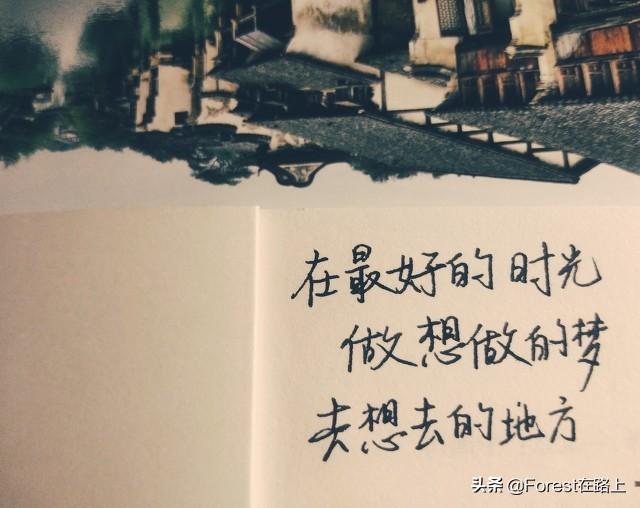 在最好的时光
做想做的梦
去想去的地方
头条 @Forest在路上